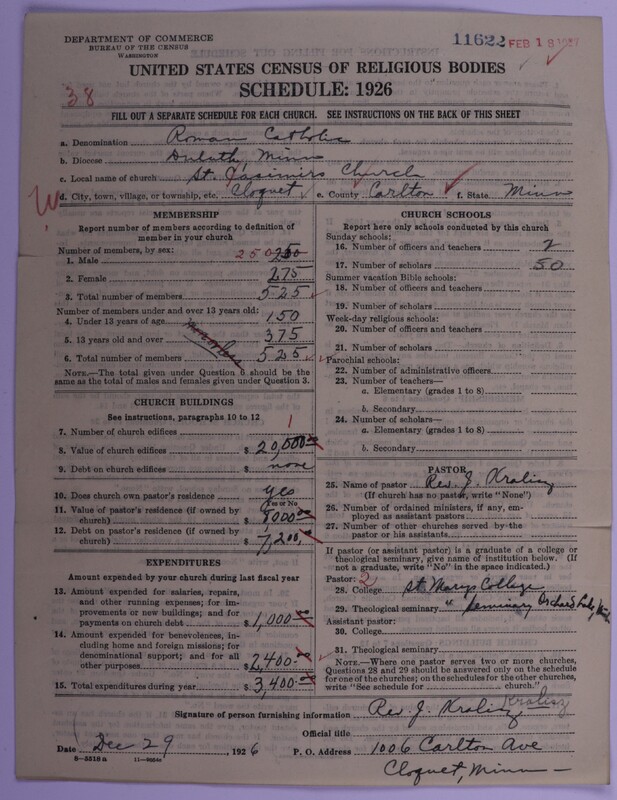 DEPARTMENT OF COMMERCE
BUREAU OF THE CENSUS
WASHINGTON
11622 FEB 18 1927
UNITED STATES CENSUS OF RELIGIOUS BODIES
SCHEDULE: 1926
38
FILL OUT A SEPARATE SCHEDULE FOR EACH CHURCH. SEE INSTRUCTIONS ON THE BACK OF THIS SHEET
a. Denomination Roman Catholic
b. Diocese Duluth Minn
c. Local name of church St. Casimirs Church
d. City, town, village, or township, etc. Cloquet e. County Carlton f. State Minn
MEMBERSHIP
Report number of members according to definition of member in your church
Number of members, by sex:
1. Male 250 250
2. Female 275
3. Total number of members 525
Number of members under and over 13 years old:
4. Under 13 years of age 150
5. 13 years old and over 375
6. Total number of members 525
NOTE.—The total given under Question 6 should be the same as the total of males and females given under Question 3.
CHURCH BUILDINGS
See instructions, paragraphs 10 to 12
7. Number of church edifices 1
8. Value of church edifices $ 20,000.00
9. Debt on church edifices $ none
10. Does church own pastor's residence yes
Yes or No
11. Value of pastor's residence (if owned by church) $ 8000.00
12. Debt on pastor's residence (if owned by church) $ 7,200.
EXPENDITURES
Amount expended by your church during last fiscal year
13. Amount expended for salaries, repairs, and other running expenses; for improvements or new buildings; and for payments on church debt $ 1,000.00
14. Amount expended for benevolences, including home and foreign missions; for denominational support; and for all other purposes $ 2,400.00
15. Total expenditures during year $ 3,400.00
CHURCH SCHOOLS
Report here only schools conducted by this church
Sunday schools:
16. Number of officers and teachers 2
17. Number of scholars 50
Summer vacation Bible schools:
18. Number of officers and teachers
19. Number of scholars
Week-day religious schools:
20. Number of officers and teachers
21. Number of scholars
Parochial schools:
22. Number of administrative officers
23. Number of teachers—
a. Elementary (grades 1 to 8)
b. Secondary
24. Number of scholars—
a. Elementary (grades 1 to 8)
b. Secondary
PASTOR
25. Name of pastor Rev. J. Kralisz
(If church has no pastor, write "None")
26. Number of ordained ministers, if any, employed as assistant pastors
27. Number of other churches served by the pastor or his assistants
If pastor (or assistant pastor) is a graduate of a college or theological seminary, give name of institution below. (If not a graduate, write "No" in the space indicated.)
Pastor: 2
28. College St. Marys College
29. Theological seminary " Seminary Orchard Lake,
Assistant pastor:
30. College
31. Theological seminary
NOTE.—Where one pastor serves two or more churches, Questions 28 and 29 should be answered only on the schedule for one of the churches; on the schedules for the other churches, write "See schedule for church."
Kralisz
Signature of person furnishing information Rev. J. Kralisz
Official title
Date Dec 29, 1926 P. O. Address 1006 Carlton Ave
8—5518a 11—4664a
Cloquet, Minn—